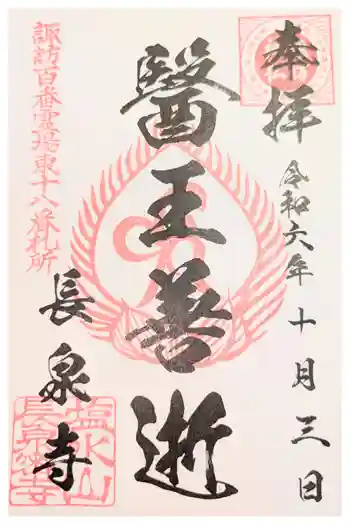 奉拝
令和六年十月三日
醫王善逝
諏訪百番霊場東十八番札所
長泉寺
塩水山
長泉禅寺